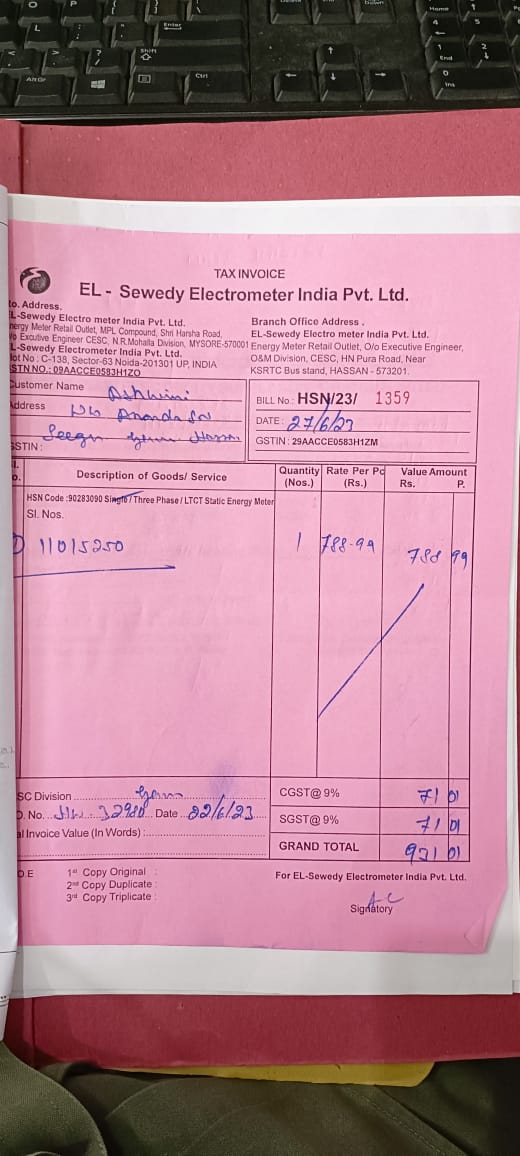 TAX INVOICE
EL - Sewedy Electrometer India Pvt. Ltd.
o. Address.
L-Sewedy Electro meter India Pvt. Ltd.
nergy Meter Retail Outlet, MPL Compound, Shri Harsha Road,
o Excutive Engineer CESC, N.R.Mohalla Division, MYSORE-570001
L-Sewedy Electrometer India Pvt. Ltd.
lot No : C-138, Sector-63 Noida-201301 UP, INDIA
STN NO.: 09AACCE0583H1ZO
Branch Office Address .
EL-Sewedy Electro meter India Pvt. Ltd.
Energy Meter Retail Outlet, O/o Executive Engineer,
O&M Division, CESC, HN Pura Road, Near
KSRTC Bus stand, HASSAN - 573201.
ustomer Name Ashwini
ddress
GSTIN :
BILL No : HSN/23/ 1359
DATE : 27/6/23
GSTIN : 29AACCE0583H1ZM
Description of Goods/ Service Quantity (Nos.) Rate Per Pc (Rs.) Value Amount Rs. P.
HSN Code :90283090 Single / Three Phase / LTCT Static Energy Meter
Sl. Nos.
11015250 1 788-99 788 99
SC Division
CGST@ 9% 71 01
. No. 32980 Date 22/6/23
SGST@ 9% 71 01
al Invoice Value (In Words) :
GRAND TOTAL 931 01
O.E
1st Copy Original :
2nd Copy Duplicate :
3rd Copy Triplicate :
For EL-Sewedy Electrometer India Pvt. Ltd.
Signatory